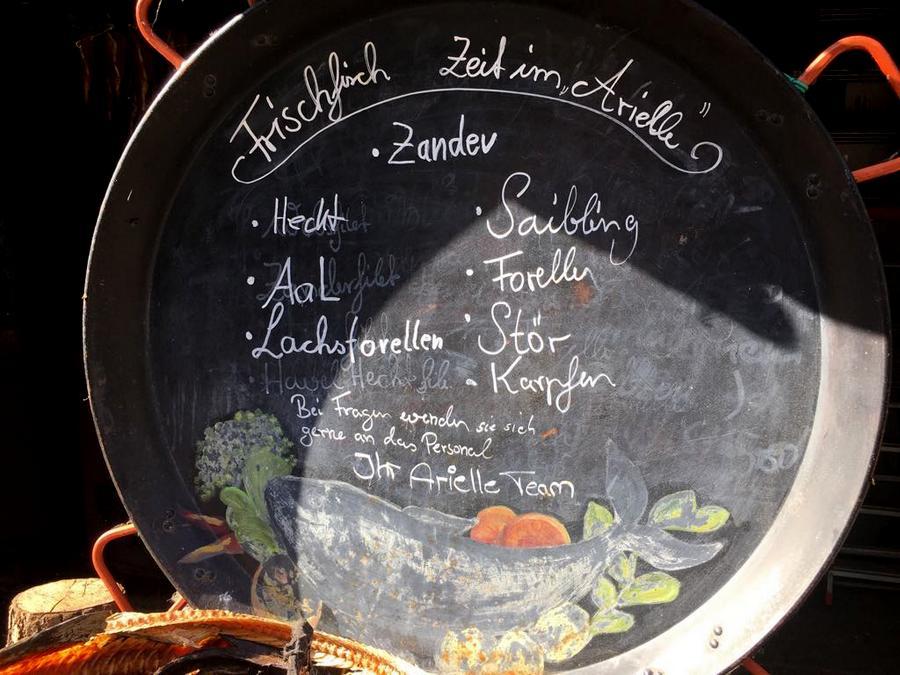 Frischfisch Zeit im „Arielle"
• Zander
• Hecht
• Saibling
• Aal
• Forellen
• Lachsforellen
• Stör
• Karpfen
Bei Fragen wenden sie sich
gerne an das Personal
Ihr Arielle Team